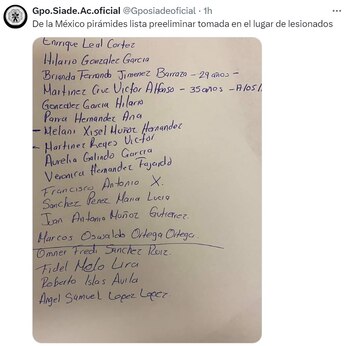 Gpo.Siade.Ac.oficial @Gposiadeoficial · 1h
De la México pirámides lista preeliminar tomada en el lugar de lesionados
Enrique Leal Cortez
Hilario Gonzalez Garcia
Brianda Fernanda Jimenez Barraza - 29 años -
Martinez Cruz Victor Alfonso - 35 años -
Gonzalez Garcia Hilario
Parra Hernandez Ana
- Melani Xisel Muñoz Hernandez
- Martinez Reyes Victor
Aurelia Galindo Garcia
Veronica Hernandez Fajardo
Francisco Antonio X.
Sanchez Perez Maria Lucia
Juan Antonio Muñoz Gutierrez
Marcos Oswaldo Ortega Ortega.
Omner Fredi Sanchez Ruiz.
Fidel Melo Lira
Roberto Islas Avila
Angel Samuel Lopez Lopez